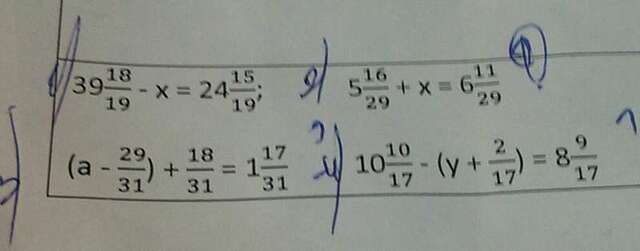 39 18/19 - x = 24 15/19; 5 16/29 + x = 6 11/29
(a - 29/31) + 18/31 = 1 17/31 10 10/17 - (y + 2/17) = 8 9/17